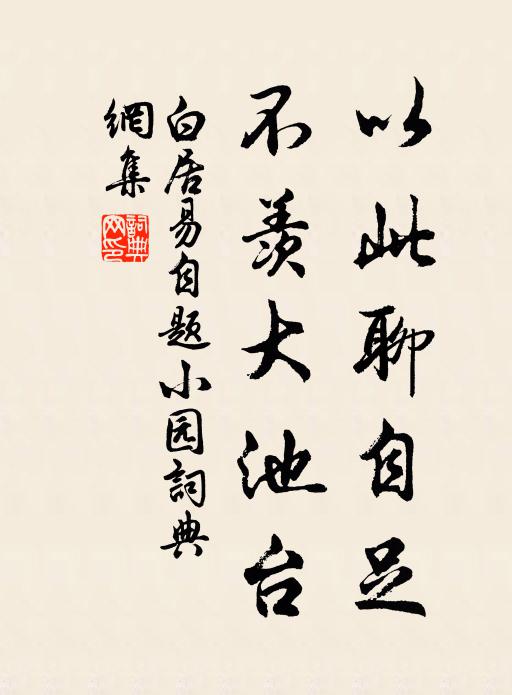 以此聊自足
不羡大池台
白居易自题小园詞典
網集
詞典
网印